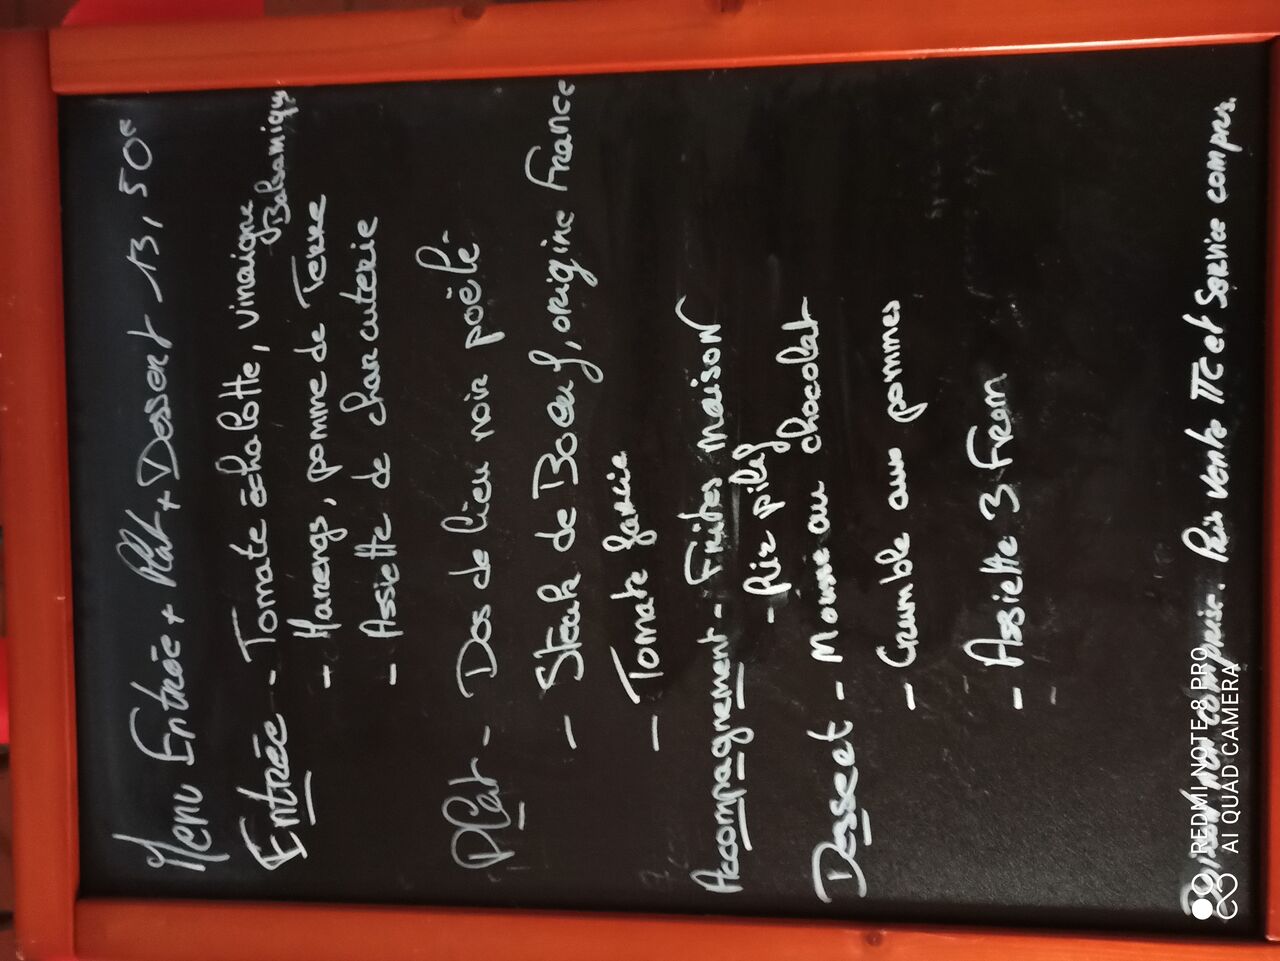 Menu Entrée + Plat + Dessert 13,50€
Entrée - Tomate échalotte, vinaigre Balsamique
- Harengs, pomme de Terre
- Assiette de charcuterie
Plat - Dos de lieu noir poêlé
- Steak de Boeuf, origine France
- Tomate farcie
Accompagnement - Frites maison
- Riz pilaf
Dessert - Mousse au chocolat
- Crumble aux pommes
- Assiette 3 From
Prix vente TTC et Service compris.
REDMI NOTE 8 PRO
AI QUAD CAMERA